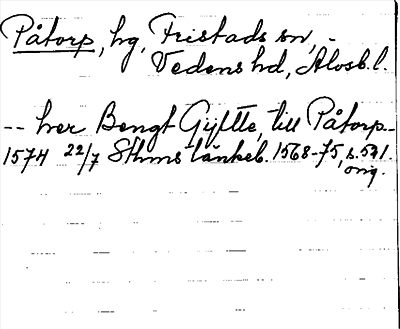 Påtorp, hg, Fristads sn, -
Vedens hd, Älvsb. l.
-- her Bengt Gyltte, till Påtorp --
1574 22/7 Sthms tänkeb. 1568-75, s. 591.
orig.